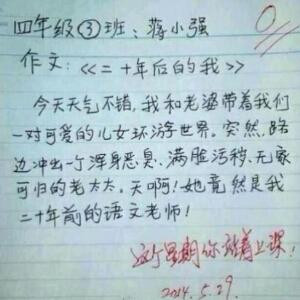 0
四年级③班：蒋小强
作文：<<二十年后的我>>
今天天气不错，我和老婆带着我们
一对可爱的儿女环游世界。突然，路
边冲出一个浑身恶臭、满脸污秽、无家
可归的老太太。天啊！她竟然是我
二十年前的语文老师！
这个星期你站着上课！
2014.5.29.